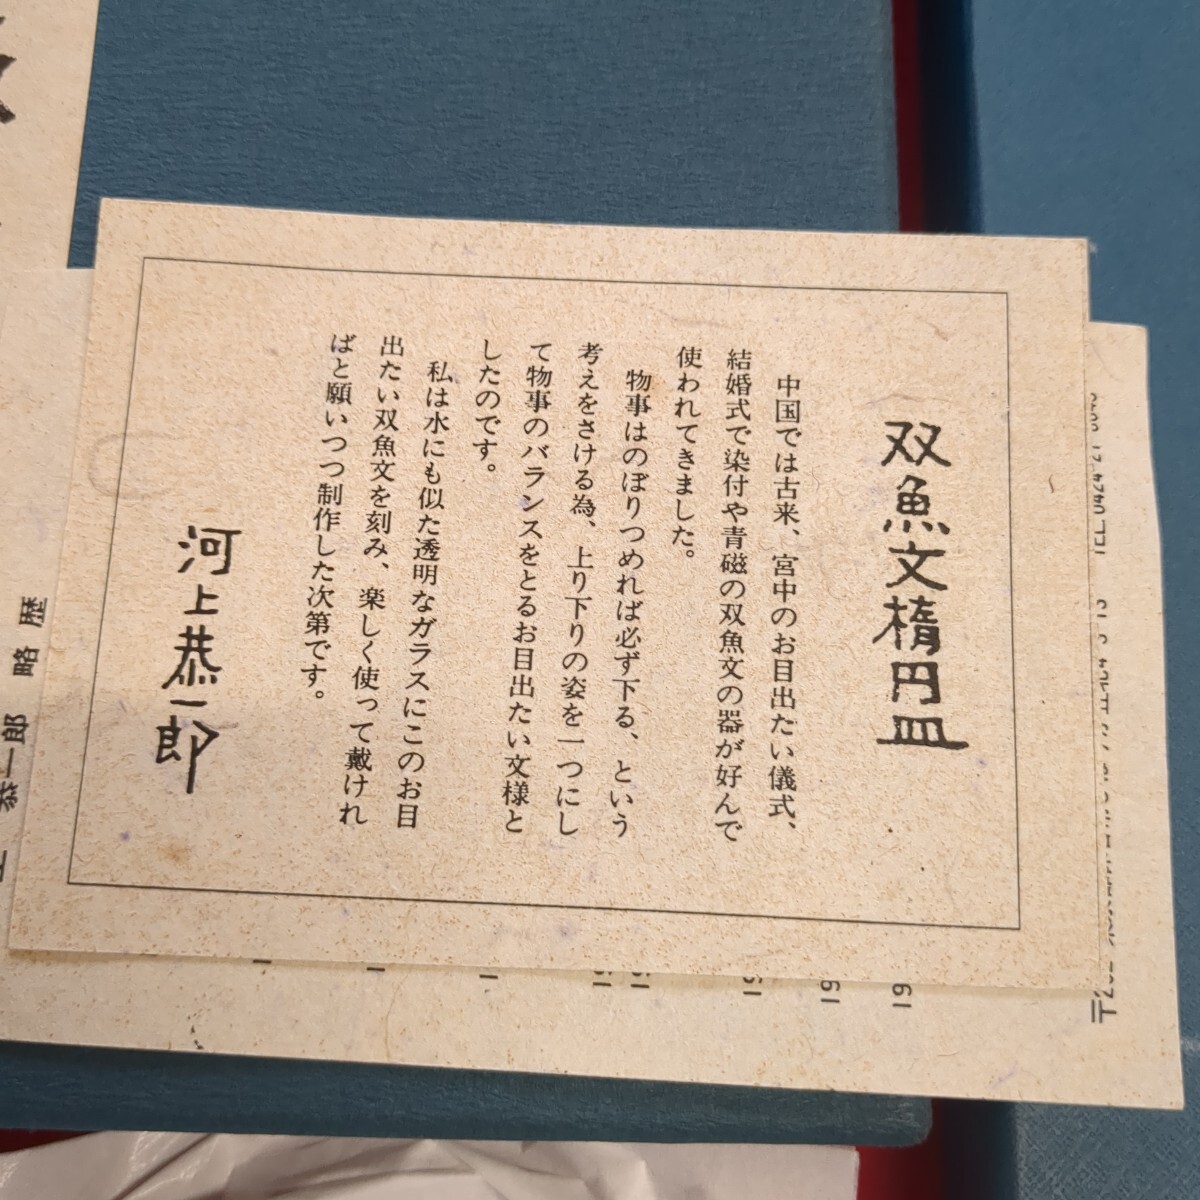 双魚文楕円皿
中国では古来、宮中のお目出たい儀式、
結婚式で染付や青磁の双魚文の器が好んで
使われてきました。
物事はのぼりつめれば必ず下る、という
考えをさける為、上り下りの姿を一つにし
て物事のバランスをとるお目出たい文様と
したのです。
私は水にも似た透明なガラスにこのお目
出たい双魚文を刻み、楽しく使って戴けれ
ばと願いつつ制作した次第です。
河上恭一郎
恭一郎 略歴
19
19
19
19
19
〒202